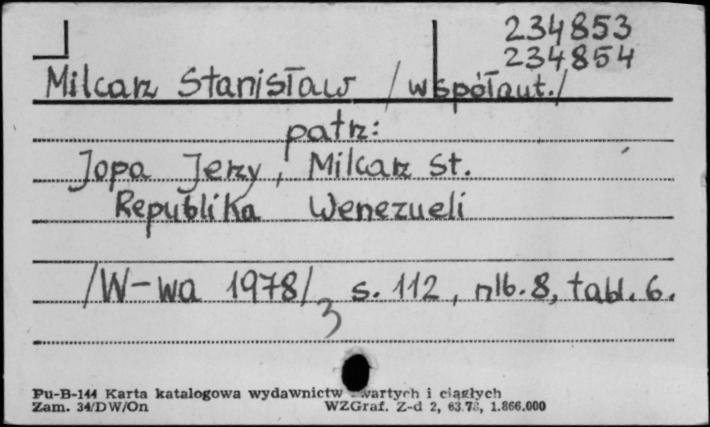 234853
234854
Milcarz Stanisław /współaut./
patrz:
Jopa Jerzy, Milcarz St.
Republika Wenezueli
/W-wa 1978/ s. 112, nlb. 8, tabl. 6.
3
Pu-B-144 Karta katalogowa wydawnictw zwartych i ciągłych
Zam. 34/DW/On WZGraf. Z-d 2, 1.866.000